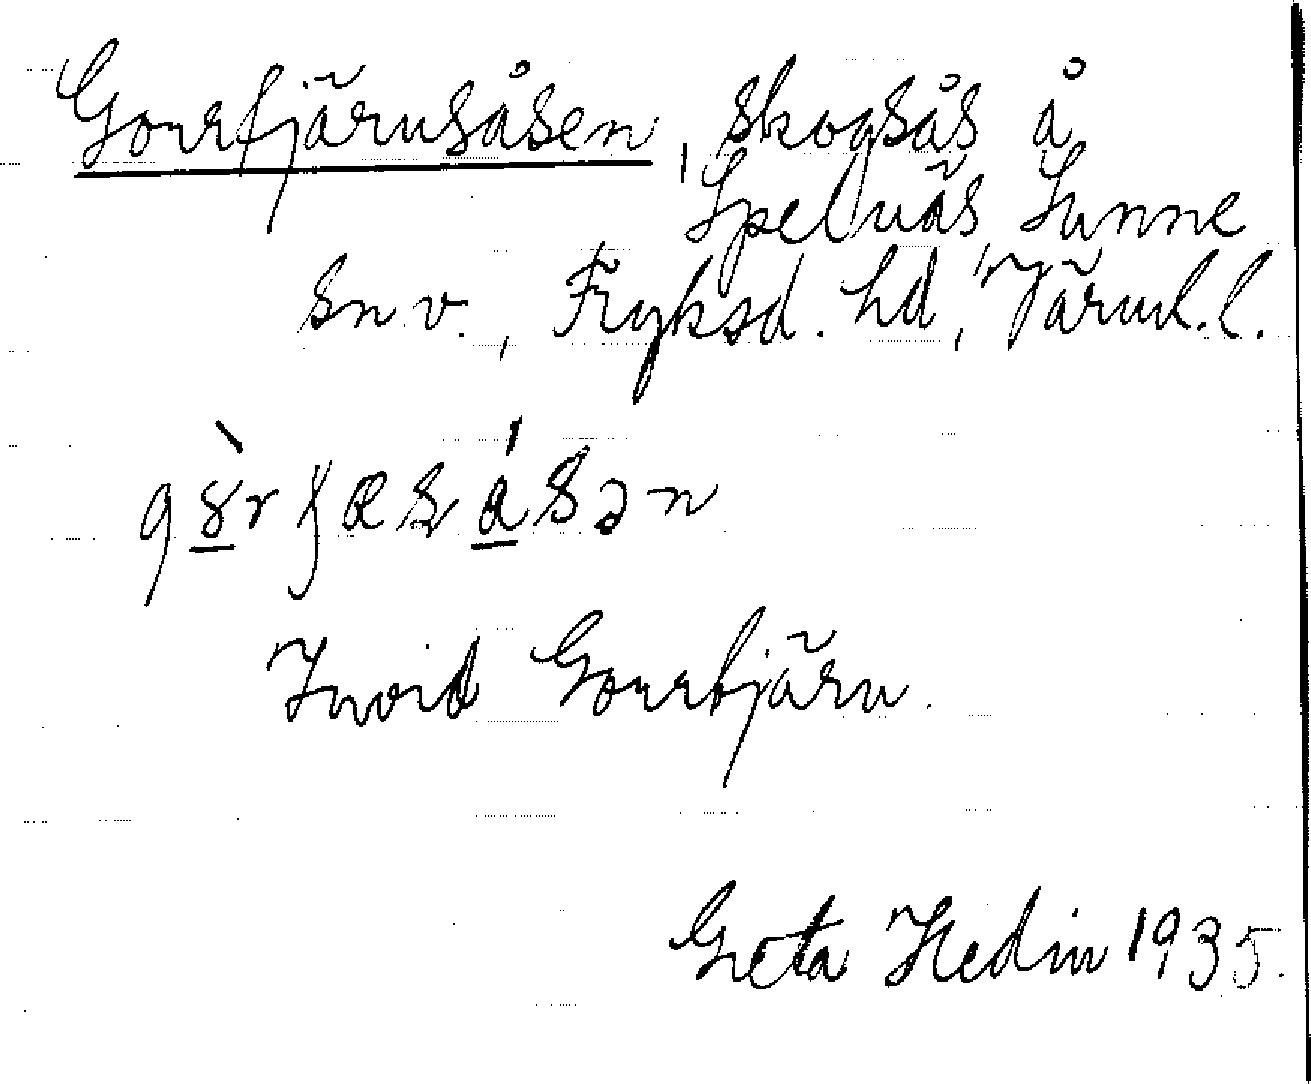 Gorrfjärnsåsen, skogsås å
Spelnäs, Sunne
sn.v., Fryksd. hd, Värml. l.
Invid Gorrbjärn.
Greta Hedin 1935.